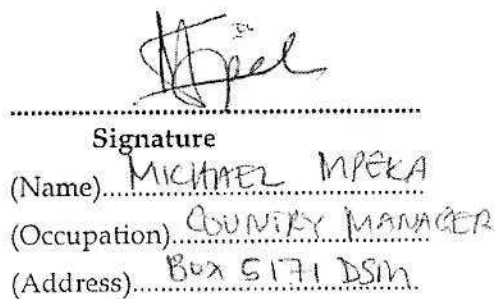 Signature
(Name) MICHAEL MPEKA
(Occupation) COUNTRY MANAGER
(Address) BOX 5171 DSM